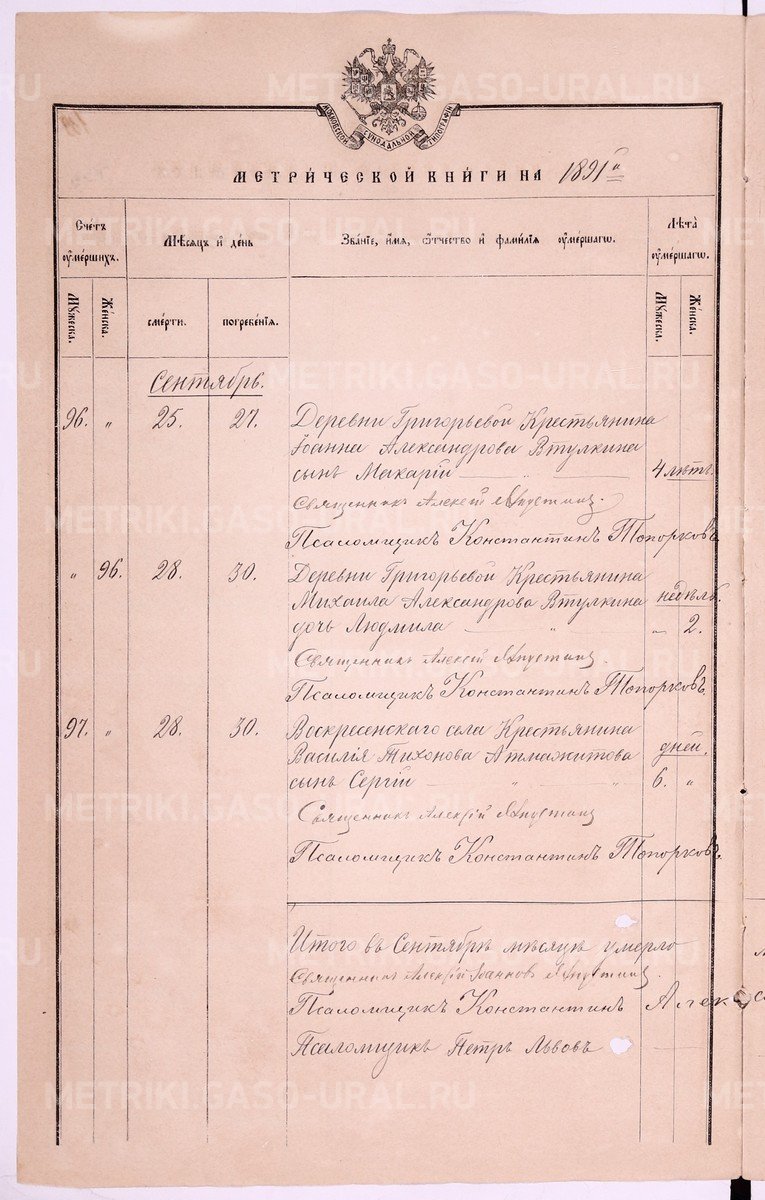 МОСКОВСКОЙ СѴНОДАЛЬНОЙ ТИПОГРАФІИ
МЕТРИ́ЧЕСКОЙ КНИ́ГИ НА 1891 й
Сче́тъ ᲂу҆ме́ршихъ.
Мѣ́сяцъ и҆ де́нь
Зва́нїе, и҆́мя, ѻ҆́тчество и҆ фами́лїя ᲂу҆ме́ршагѡ.
Лѣ́та ᲂу҆ме́ршагѡ.
Мꙋ́жеска.
Же́нска.
сме́рти.
погребе́нїя.
Мꙋ́жеска.
Же́нска.
Сентябрь.
96. „ 25. 27. Деревни Григорьевой Крестьянина
Іоанна Александрова Втулкина
сынъ Макарій — „ — 4 лѣтъ.
Священникъ Алексѣй
Псаломщикъ Константинъ Топорковъ
„ 96. 28. 30. Деревни Григорьевой Крестьянина
Михаила Александрова Втулкина недѣль.
дочь Людмила — „ — „ 2.
Священникъ Алексѣй
Псаломщикъ Константинъ Топорковъ.
97. „ 28. 30. Воскресенскаго села Крестьянина
Василія Тихонова Атмажитова дней.
сынъ Сергій — „ — „ 6. „
Священникъ Алексѣй
Псаломщикъ Константинъ Топорковъ.
Итого въ Сентябрѣ мѣсяцѣ умерло
Священникъ Алексѣй Іоанновъ
Псаломщикъ Константинъ Алек
Псаломщикъ Петръ Львовъ
METRIKI.GASO-URAL.RU